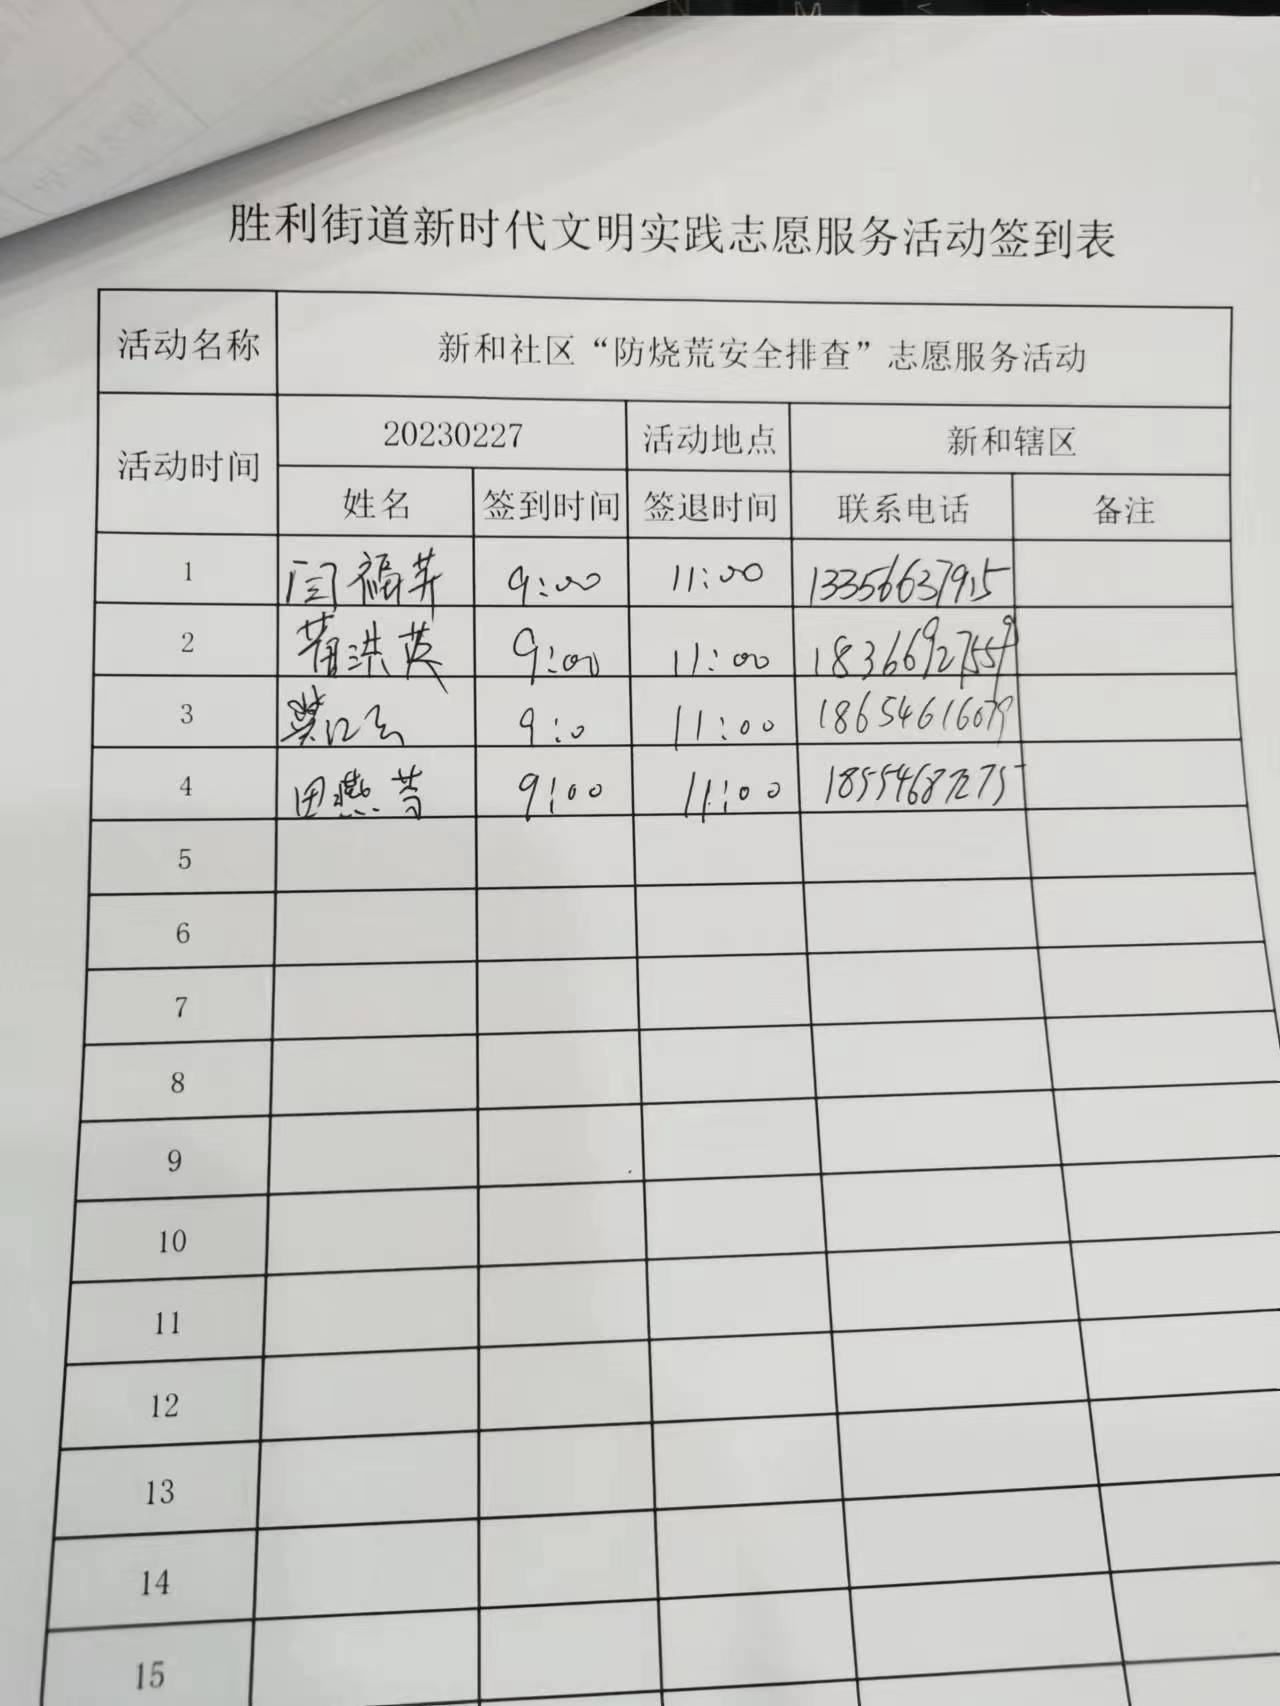 胜利街道新时代文明实践志愿服务活动签到表
活动名称 新和社区“防烧荒安全排查”志愿服务活动
活动时间 20230227 活动地点 新和辖区
姓名 签到时间 签退时间 联系电话 备注
1 闫福英 9:00 11:00 13356637915
2 洪英 9:00 11:00 18366927559
3 9:0 11:00 18654616079
4 田燕 9:00 11:00 18554687275
5
6
7
8
9
10
11
12
13
14
15